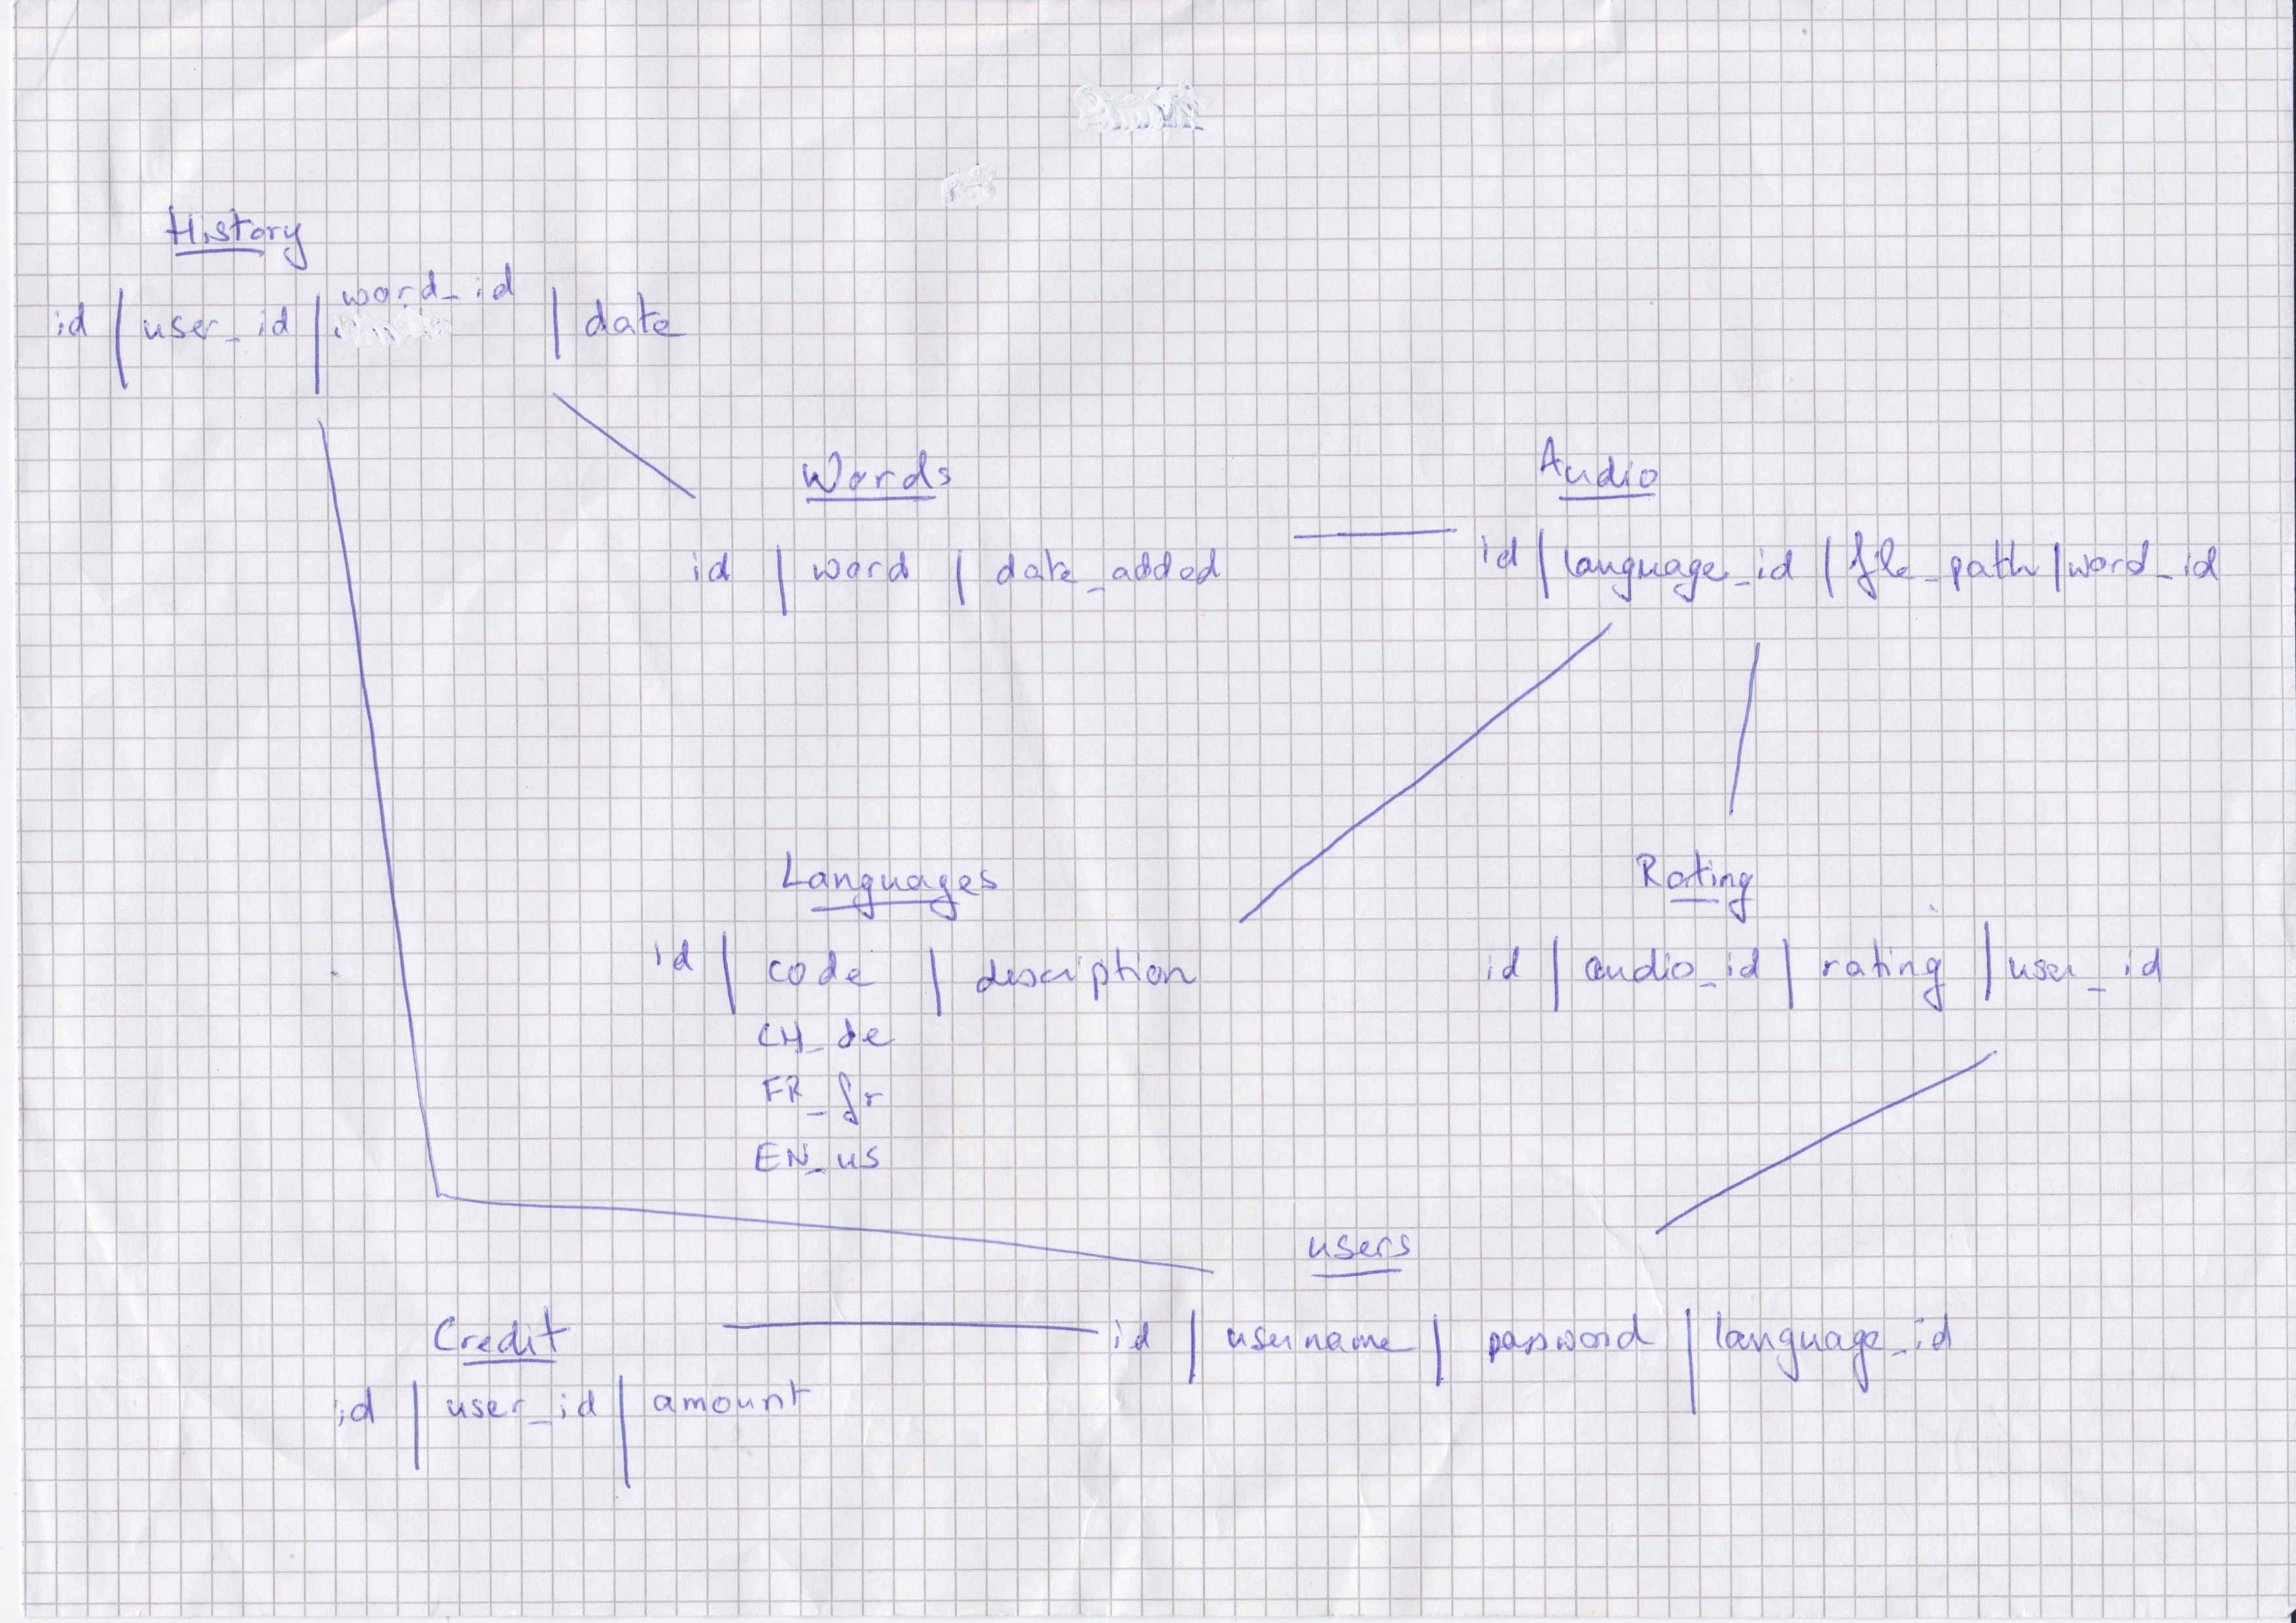 History
id | user_id | word_id | date
Words
id | word | date_added
Audio
id | language_id | file_path | word_id
Languages
id | code | description
CH_de
FR_fr
EN_us
Rating
id | audio_id | rating | user_id
users
id | username | password | language_id
Credit
id | user_id | amount